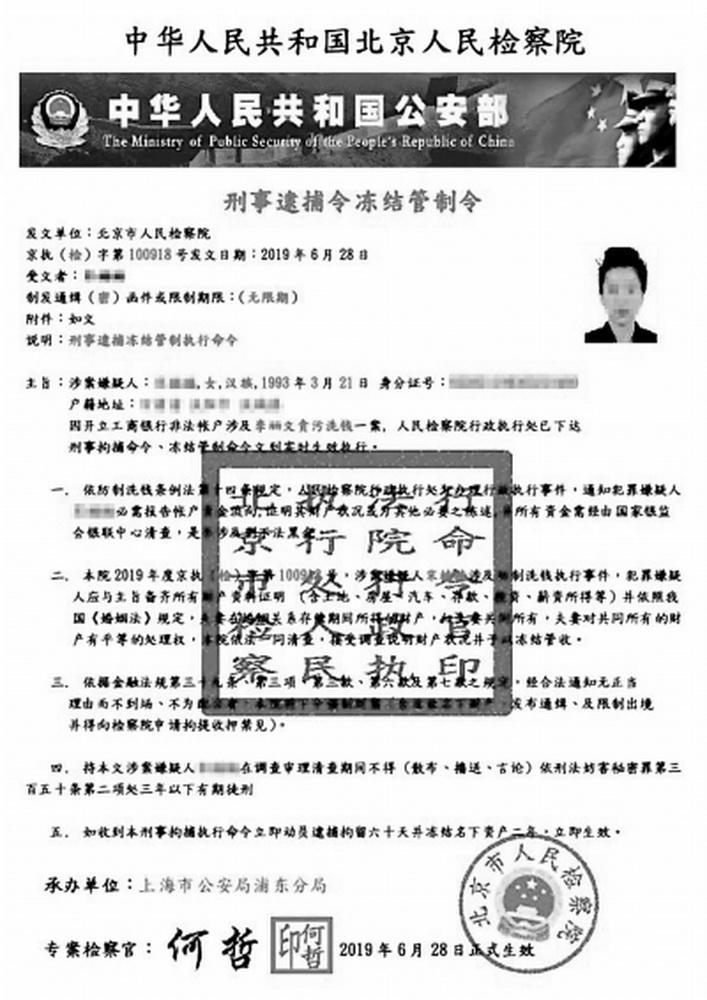 中华人民共和国北京人民检察院
中华人民共和国公安部
The Ministry of Public Security of the People's Republic of China
刑事逮捕令冻结管制令
发文单位：北京市人民检察院
京执（检）字第100918号发文日期：2019年6月28日
受文者：
制发通缉（密）函件或限制期限：（无限期）
附件：如文
说明：刑事逮捕冻结管制执行命令
主旨：涉案嫌疑人：,女,汉族,1993年3月21日 身分证号：
户籍地址：
因开立工商银行非法帐户涉及李丽文贪污洗钱一案，人民检察院行政执行处已下达
刑事拘捕命令、冻结管制命令文到实时生效执行。
一． 依防制洗钱条例法第十四条规定，人民检察院行政执行处为办理行政执行事件，通知犯罪嫌疑人
必需报告帐户资金项向,证明其财产状况或为其他必要之陈述,并所有资金需经由国家银监
会银联中心清查，是
二． 本院2019年度京执（检）字第100918号，涉案嫌疑人涉及防制洗钱执行事件，犯罪嫌疑
人应与主旨备齐所有财产资料证明（含土地、房屋、汽车、存款、投资、薪资所得等）并依照我
国《婚姻法》规定，夫妻在婚姻关系存续期间所得的财产，归夫妻共同所有，夫妻对共同所有的财
产有平等的处理权，本院依法一同清查，接受调查说明财产状况并予以冻结管收。
三． 依据金融法规第三十九条、第三项、第三款、第六款及第七款之规定，经合法通知无正当
理由而不到场、不为发布通缉、及限制出境
并得向检察院申请拘提收押禁见）。
四． 持本文涉案嫌疑人在调查审理清查期间不得（散布、播送、言论）依刑法妨害秘密罪第三
百五十条第二项处三年以下有期徒刑
五． 如收到本刑事拘捕执行命令立即动员逮捕拘留六十天并冻结名下资产二年，立即生效。
承办单位：上海市公安局浦东分局
专案检察官：何哲
何哲印
2019年6月28日正式生效
北京市人民检察院